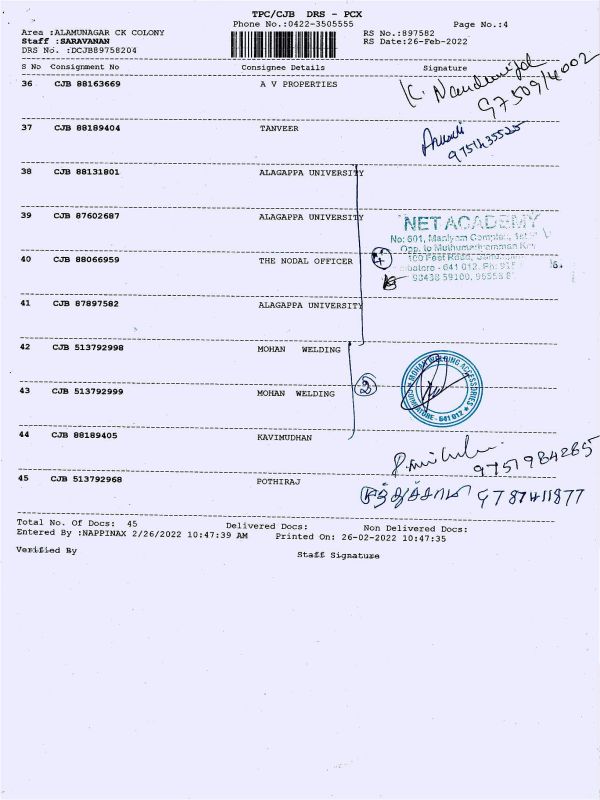 TPC/CJB DRS - PCX
Phone No.:0422-3505555 Page No.:4
Area :ALAMUNAGAR CK COLONY RS No.:897582
Staff :SARAVANAN RS Date:26-Feb-2022
DRS No. :DCJB89758204
S No Consignment No Consignee Details Signature
36 CJB 88163669 A V PROPERTIES
37 CJB 88189404 TANVEER
38 CJB 88131801 ALAGAPPA UNIVERSITY
39 CJB 87602687 ALAGAPPA UNIVERSITY
NET ACADEMY
No: 601, Maniyam Complex, 1st
Opp. to Muthumariamman
40 CJB 88066959 THE NODAL OFFICER
100 Feet Road,
641 012. Ph:
90438 59100,
41 CJB 87897582 ALAGAPPA UNIVERSITY
42 CJB 513792998 MOHAN WELDING
MOHAN WELDING ACCESSORIES
COIMBATORE - 641 012
43 CJB 513792999 MOHAN WELDING
2
44 CJB 88189405 KAVIMUDHAN
9751984265
45 CJB 513792968 POTHIRAJ
Total No. Of Docs: 45 Delivered Docs: Non Delivered Docs:
Entered By :NAPPINAX 2/26/2022 10:47:39 AM Printed On: 26-02-2022 10:47:35
Verified By Staff Signature